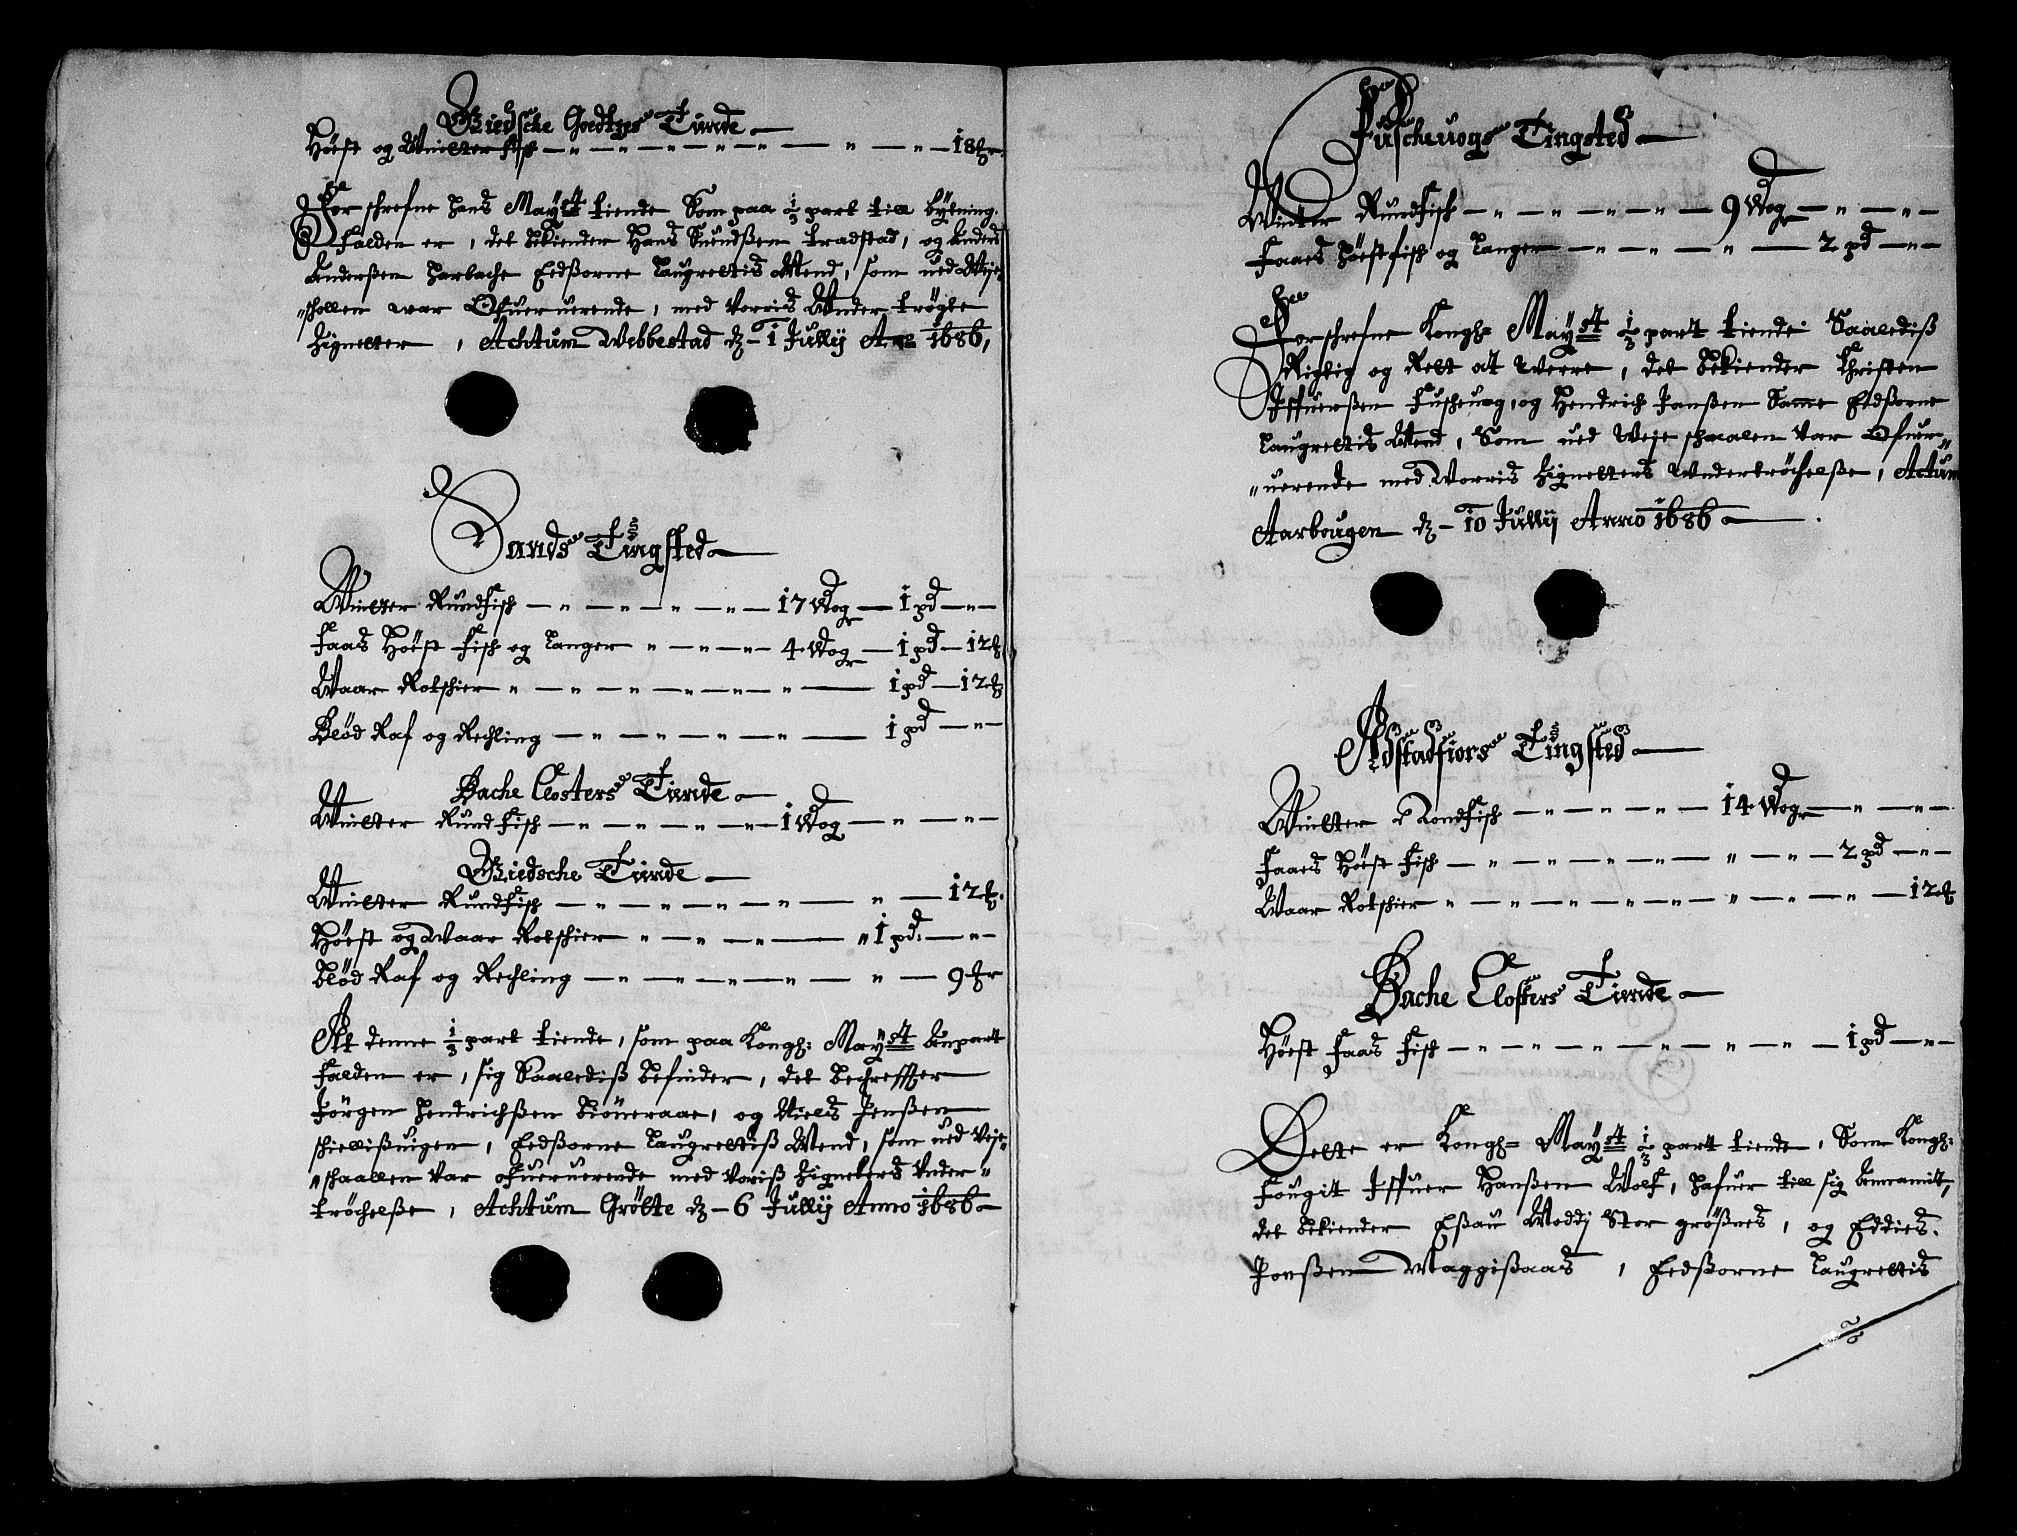 Giedsche Godtzes Tiende
Höest og Winter fisk — 18 ℔r
For schrefne hans Mayst tiende Som paa 1/3 part till bytning
falden er, det bekiender Hans Suendßen tradstad, og Anders
Anderßen Harbache Eedßorne Laugrettis Mend, som ued Weje
"schollen war Ofueruerende, med vorris Under tröchte
Signetter, Achtum Webbestad d. 1 Jullij Ano 1686,
Sands Tingsted
Winter Rundfisk — 17 Wogr — 1 pd — " —
Faas Höest fisk og Langer " — 4 Wogr — 1 pd — 12 ℔
Waar Rotskier — 1 pd — 12 ℔
Blöd Raf og Rechling — 1 pd — " —
Bache Closters Tiende
Winter Rundfisk — 1 Wog — " — " —
Giedsche Tiende
Winter Rundfisk — " — 12 ℔
Höest og Waar Rotskier " — " 1 pd: — " —
blöd Raf og Rechling — " — 9 ℔r
At denne 1/3 part tiende, som paa Kongh: Mayst Anpart
falden er, sig Saalediß befinder, det bechreffter
Jörgen Hendrichßen Biöneraae, og Niels Jenßen
schiellißuigen, Eedßorne Laugrettiß Mend, som ued Veje"
"schaallen var ofueruerende med voriß Signeters Under"
tröchelße, Achtum Grötte d. 6 Jullij Anno 1686
Fuscheuogs Tingsted
Winter Rundfisk — 9 Wogr — " — " —
Faaes höestfisk og Langer — " — 2 pd — " —
Forschrefne Kongh= Mayst 1/3 part tiende Saalediß
Rigtig og Rett at Weere, det bekiender Christen
Iffuerßen Fuscheuog, og Hendrich Janßen Samme Eedßorne
Laugrettis Mend, Som ued Weje schaalen var Ofuer"
"uerende med Worris Signetters Undertröchelße, Actum
Aarbougen d. 10 Jullij Anno 1686
Adstadfiors Tingsted
Winter Rondfisk — 14 Wogr — " — " —
Faaes Höest fisk — " — " — 2 pd — " —
Waar Rotskier " — " — " — 12 ℔
Bache Closters Tiende
Höest faas fisk — " — " — 1 pd — " —
Dette er Kongh= Mayst 1/3 part tiende, Som Kongh:
Fougit Iffuer Hanßen Wolf, hafuer till sig Annamit,
det bekiender Eßau Moddj Stor größnes, og Eddies.
Jonßen Maggißaas, Eedßorne Laugrettis